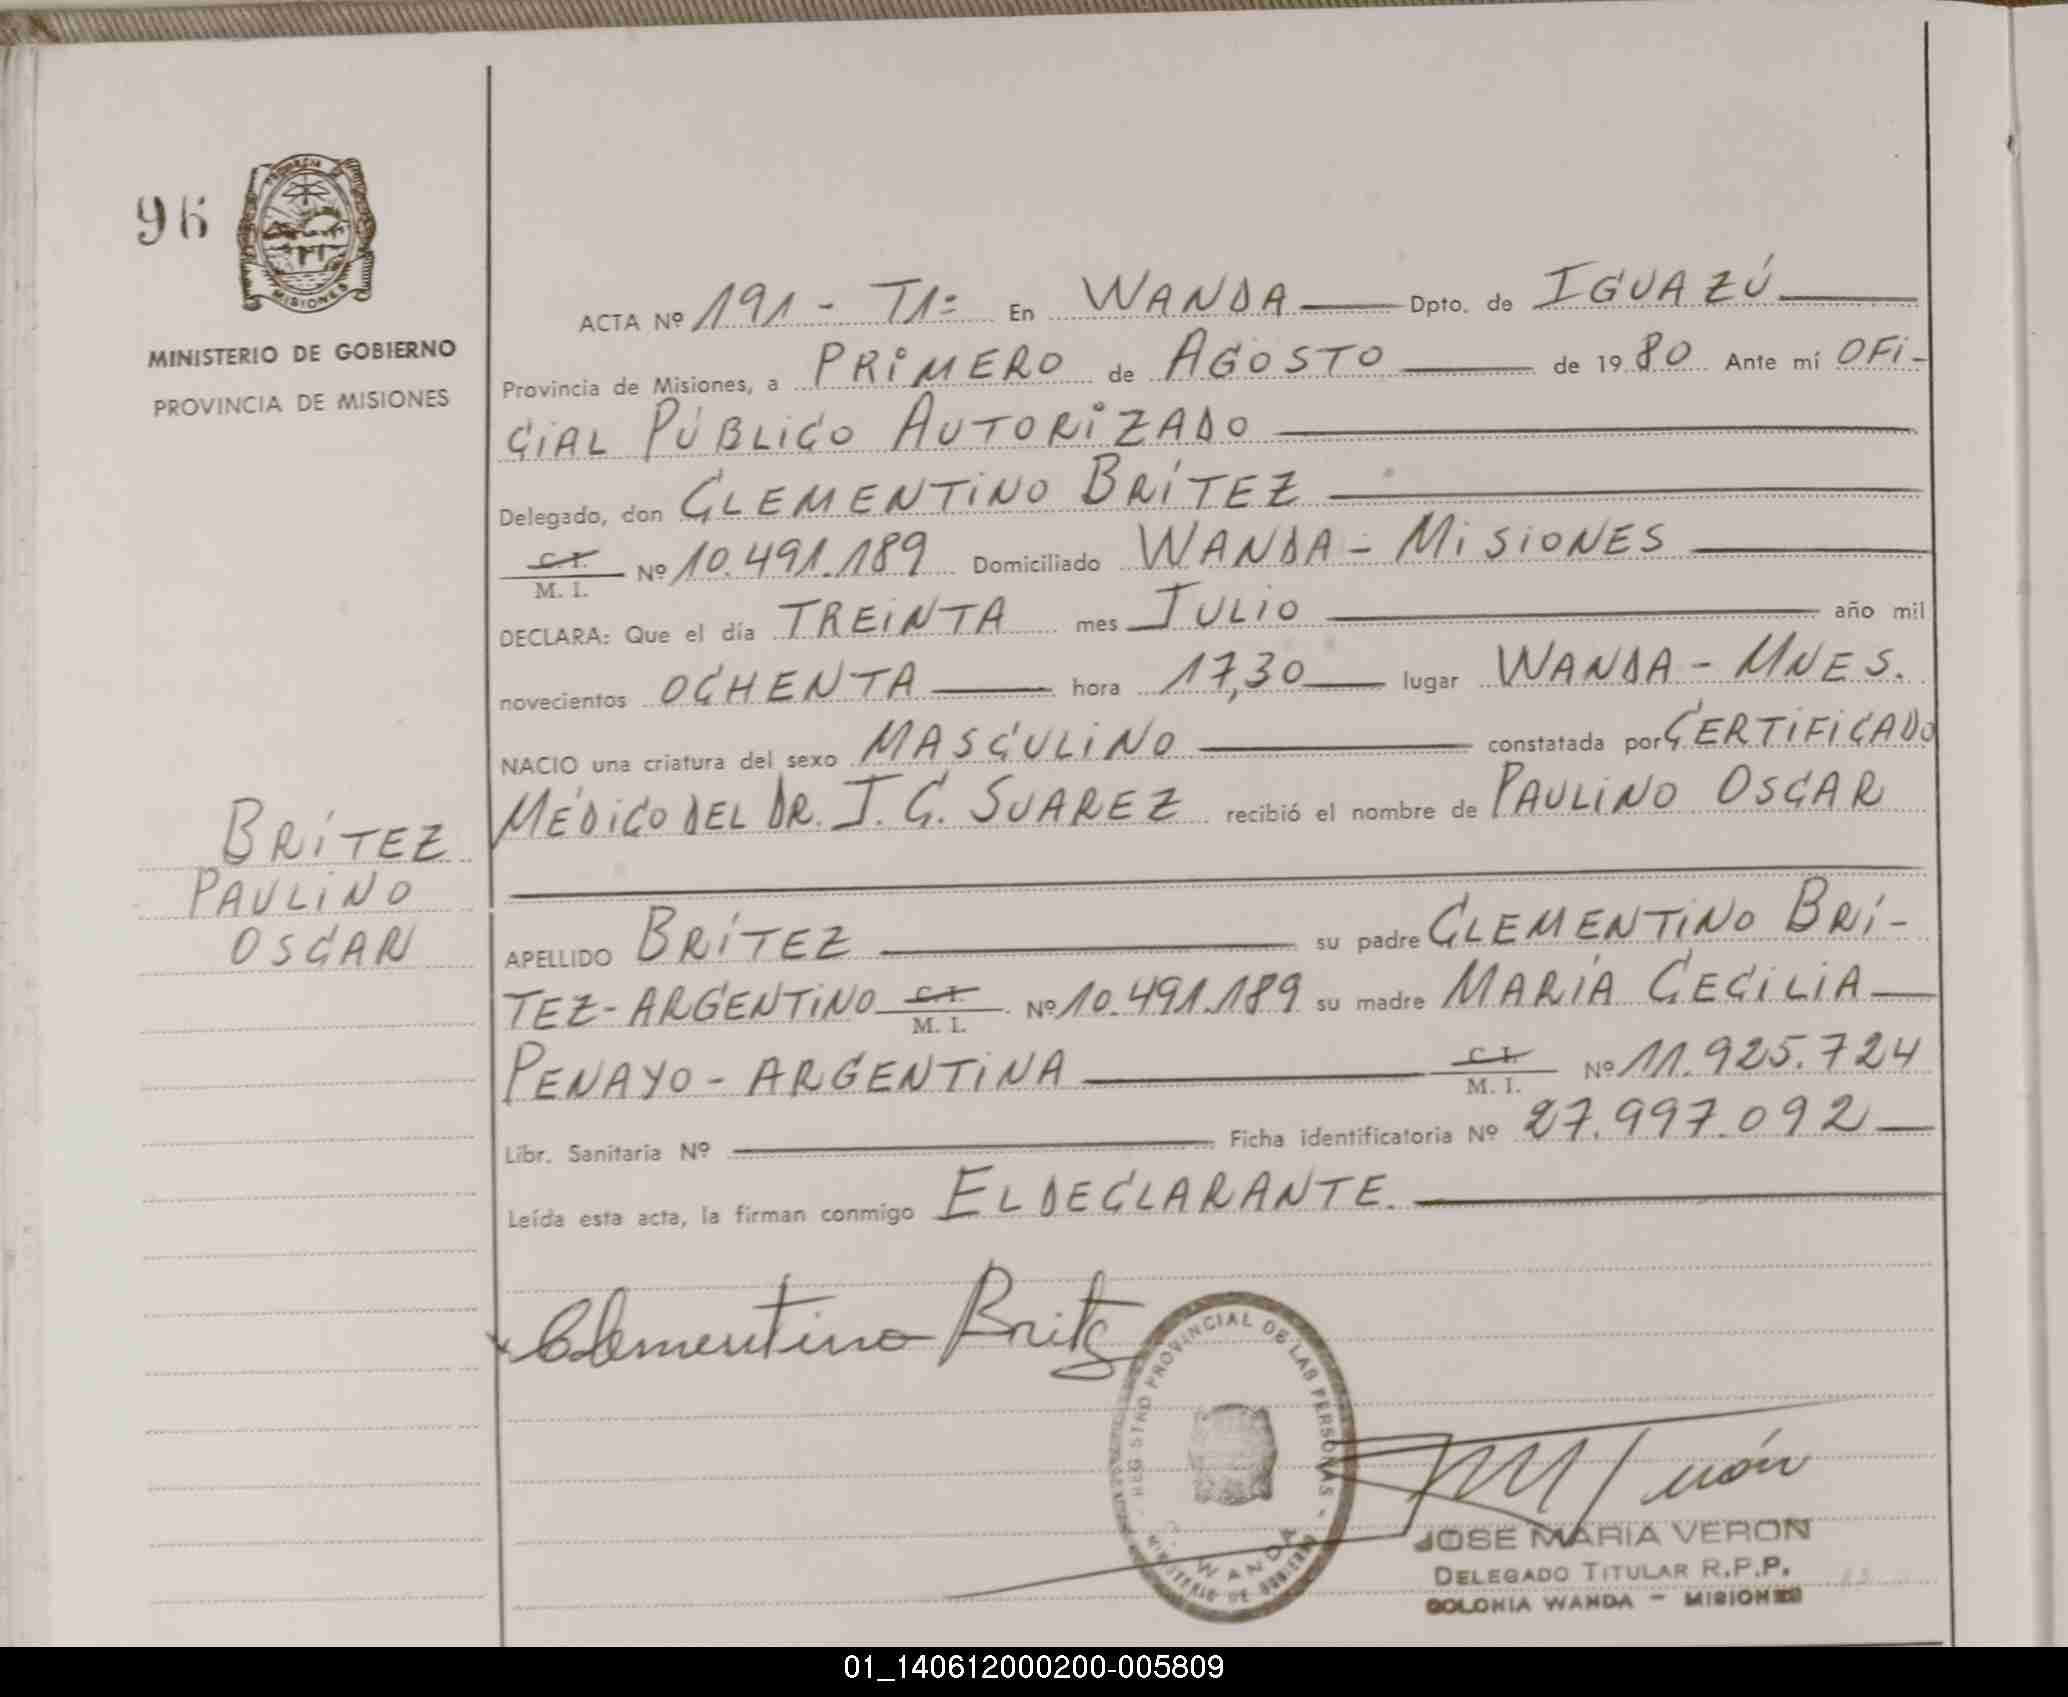 96
PROVINCIA
MISIONES
MINISTERIO DE GOBIERNO
PROVINCIA DE MISIONES
BRÍTEZ
PAULINO
OSCAR
ACTA Nº 191 - T1º En WANDA Dpto. de IGUAZÚ
Provincia de Misiones, a PRIMERO de AGOSTO de 1980 Ante mí OFI-
CIAL PÚBLICO AUTORIZADO
Delegado, don CLEMENTINO BRÍTEZ
C. I.
M. I. Nº 10.491.189 Domiciliado WANDA - MISIONES
DECLARA: Que el día TREINTA mes JULIO año mil
novecientos OCHENTA hora 17,30 lugar WANDA - MNES.
NACIO una criatura del sexo MASCULINO constatada por CERTIFICADO
MÉDICO DEL DR. J. C. SUAREZ recibió el nombre de PAULINO OSCAR
APELLIDO BRÍTEZ su padre CLEMENTINO BRÍ-
TEZ - ARGENTINO C. I. M. I. Nº 10.491.189 su madre MARÍA CECILIA
PENAYO - ARGENTINA C. I. M. I. Nº 11.925.724
Libr. Sanitaria Nº Ficha identificatoria Nº 27.997.092
Leída esta acta, la firman conmigo EL DECLARANTE.
Clementino Britez
REGISTRO PROVINCIAL DE LAS PERSONAS
WANDA
MINISTERIO DE GOBIERNO
JOSE MARIA VERON
DELEGADO TITULAR R.P.P.
COLONIA WANDA - MISIONES
01_140612000200-005809